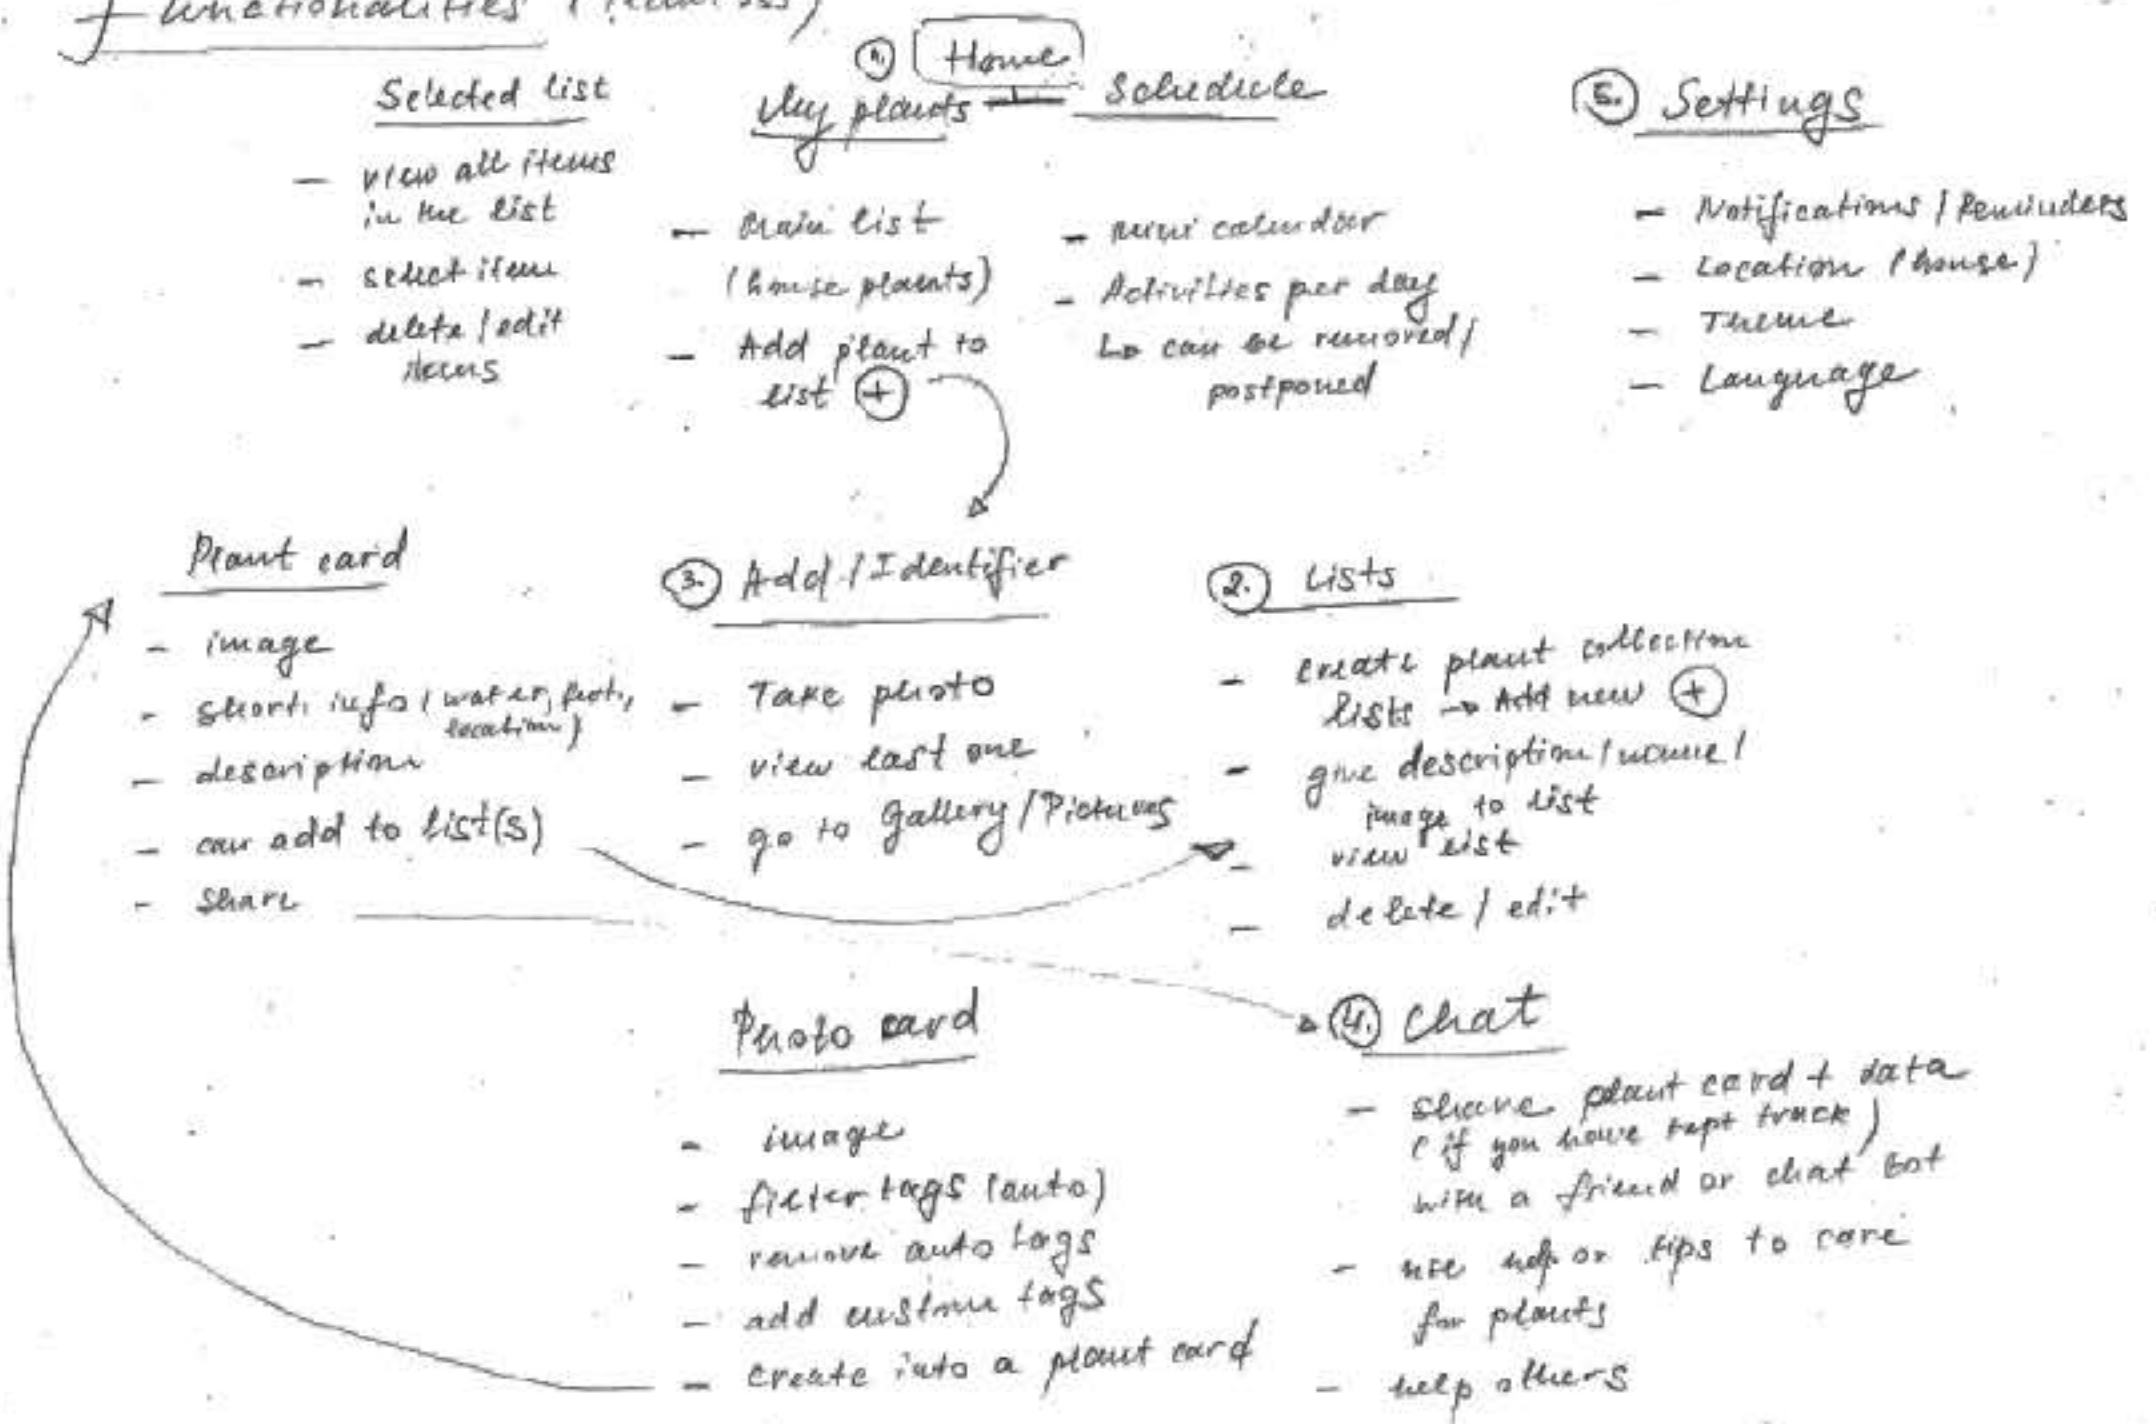 functionalities
1. Home
Selected list
- view all items
in the list
- select item
- delete / edit
items
My plants
- Main list
(house plants)
- Add plant to
list +
Schedule
- mini calendar
- Activities per day
↳ can be removed /
postponed
5. Settings
- Notifications / Reminders
- Location (house)
- Theme
- Language
Plant card
- image
- short info (water, fert.,
location)
- description
- can add to list(s)
- share
3. Add / Identifier
- Take photo
- view last one
- go to Gallery / Pictures
2. Lists
- create plant collection
lists → Add new +
- give description / name /
image to list
- view list
- delete / edit
Photo card
- image
- filter tags (auto)
- remove auto tags
- add custom tags
- create into a plant card
4. Chat
- share plant card + data
(if you have kept track)
with a friend or chat bot
- use help or tips to care
for plants
- help others